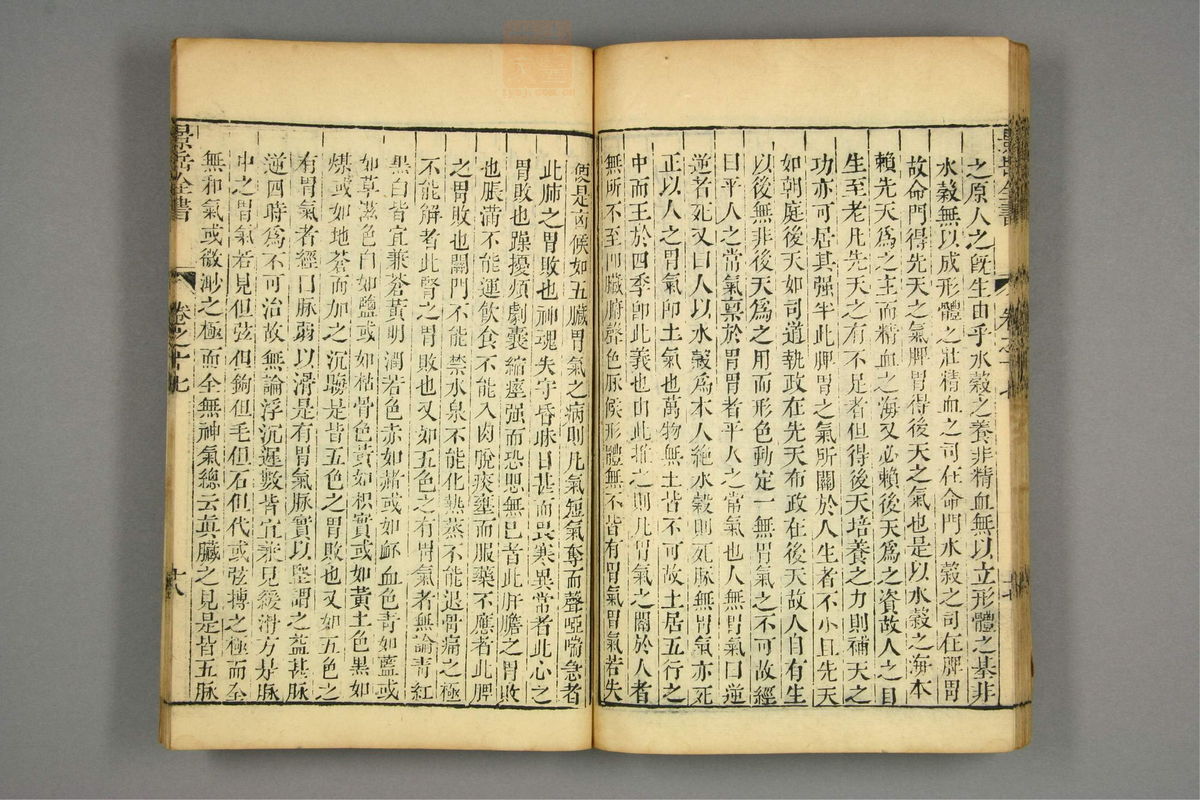 之原人之旣生由乎水穀之養非精血無以立形體之基非
水穀無以成形體之壯精血之司在命門水穀之司在脾胃
故命門得先天之氣脾胃得後天之氣也是以水穀之海本
賴先天爲之主而精血之海又必賴後天爲之資故人之自
生至老凡先天之有不足者但得後天培養之力則補天之
功亦可居其强半此脾胃之氣所關於人生者不小且先天
如朝庭後天如司道執政在先天布政在後天故人自有生
以後無非後天爲之用而形色動定一無胃氣之不可故經
曰平人之常氣稟於胃胃者平人之常氣也人無胃氣曰逆
逆者死又曰人以水穀爲本人絶水穀則死脉無胃氣亦死
正以人之胃氣卽土氣也萬物無土皆不可故土居五行之
中而王於四季卽此義也由此推之則凡胃氣之關於人者
無所不至卽臟腑聲色脉候形體無不皆有胃氣胃氣若失
便是凶候如五臟胃氣之病則凡氣短氣奪而聲啞喘急者
此肺之胃敗也神魂失守昏昧日甚而畏寒異常者此心之
胃敗也躁擾煩劇囊縮痙强而恐懼無已者此肝膽之胃敗
也脹滿不能運飲食不能入肉脫痰壅而服藥不應者此脾
之胃敗也關門不能禁水泉不能化熱蒸不能退骨痛之極
不能解者此腎之胃敗也又如五色之有胃氣者無論青紅
黑白皆宜兼蒼黃明潤若色赤如赭或如衃血色青如藍或
如草滋色白如鹽或如枯骨色黃如枳實或如黃土色黑如
煤或如地蒼而加之沉晦是皆五色之胃敗也又如五色之
有胃氣者經曰脉弱以滑是有胃氣脉實以堅謂之益甚脉
逆四時爲不可治故無論浮沉遲數皆宜兼見緩滑方是脉
中之胃氣若見但弦但鉤但毛但石但代或弦搏之極而全
無和氣或微渺之極而全無神氣總云眞臟之見是皆五脉
景岳全書
卷之十七
十八